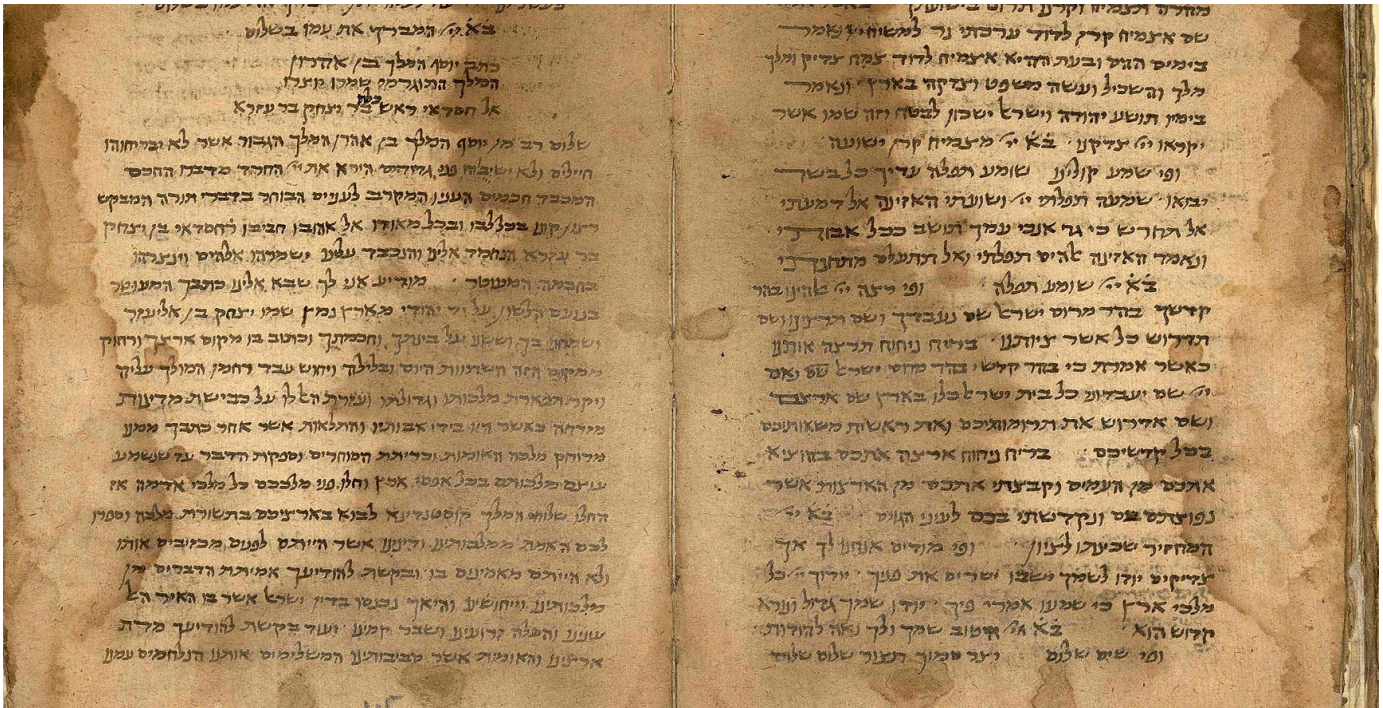 מהרה תצמיח וקרנו תרום בישועתך
שם אצמיח קרן לדוד ערכתי נר למשיחי ונאמר
בימים ההם ובעת ההיא אצמיח לדוד צמח צדיק ומלך
מלך והשכיל ועשה משפט וצדקה בארץ ונאמר
בימיו תושע יהודה וישראל ישכון לבטח וזה שמו אשר
יקראו ייי צדקנו בא ייי מצמיח קרן ישועה
ופי שמע קולינו שומע תפלה עדיך כל בשר
יבואו שמעה תפלתי ייי ושועתי האזינה אל דמעתי
אל תחרש כי גר אנכי עמך תושב ככל אבותי
ונאמר האזינה אלהים תפלתי ואל תתעלם מתחנתי
בא ייי שומע תפלה ופי רצה ייי אלהינו בהר
קדשך בהר מרום ישראל שם נעבדך ושם תרצינו ושם
תדרוש כל אשר ציותנו בריח ניחוח תרצה אותנו
כאשר אמרת כי בהר קדשי בהר מרום ישראל נאם
ייי שם יעבדוני כל בית ישראל כלו בארץ שם ארצם
ושם אדרוש את תרומותיכם ואת ראשית משאותיכם
בכל קדשיכם בריח ניחוח ארצה אתכם בהוציאי
אתכם מן העמים וקבצתי אתכם מן הארצות אשר
נפוצתם בם ונקדשתי בכם לעיני הגוים בא ייי
המחזיר שכינתו לציון ופי מודים אנחנו לך אך
צדיקים יודו לשמך ישבו ישרים את פניך יודוך ייי כל
מלכי ארץ כי שמעו אמרי פיך יודו שמך גדול ונורא
קדוש הוא בא ייי הטוב שמך ולך נאה להודות
ופי שים שלום יצר סמוך תצור שלום שלום
בא ייי המברך את עמו בשלום
כתב יוסף המלך בן אהרון
המלך התוגרמי
אל חסדאי ראש כלה בר יצחק בר עזרא
שלום רב מן יוסף המלך בן אהרן המלך הגבור אשר לא יבריחוהו
חיילים ולא ישיבוהו פני גדודים הירא את ייי החרד מדברו החכם
המכבד חכמים הענו המקרב לעניים הבוחר בדברי תורה המבקש
רצון קונו בכל לבו ובכל מאודו אל אהובו חביבו ר חסדאי בן יצחק
בר עזרא הנחמד אלינו והנכבד עלינו ישמרהו אלהים וינצרהו
בחכמה המעוטר מודיע אני לך שבא אלינו כתבך המעוטר
בנועם הלשון על יד יהודי מארץ נמץ שמו יצחק בן אליעזר
ושמחנו בך וששנו על בינתך וחכמתך וכתוב בו מקום ארצך ורחוק
ממקום הזה השוויות היום ובלילה ויחוש עבד רחמן המולך עליה
ויקר תפארת מלכותו וגדולתו ועזרת האל לו על כבישת מדינות
מזרחה כאשר היו בידי אבותיו והתלאות אשר אחר כתבך ממנו
מרוחק מלכה האומות וכריתת הסוחרים וספקת הדבר עד שנשמע
עוצם מלכותם בכל אפסי ארץ וחלו פני מלככם כל מלכי אדמה אז
החלו שלוחי המלך קוסטנדינא לבוא בארציכם בתשורת מלכה וספרו
לכם האמת ממלכותינו ודינינו אשר הייתם לפנים מכזיבים אותו
ולא הייתם מאמינים בו ובקשת להודיעך אמיתת הדברים מן
מלכותינו וייחושינו והיאך נכנסו בדין ישראל אשר בו האיר האל
עינינו והפלה זרועינו ושבר קמינו ועוד בקשת להודיעך מדת
ארצינו והאומות אשר מסביבותינו המשלימים אותנו הנלחמים עמנו